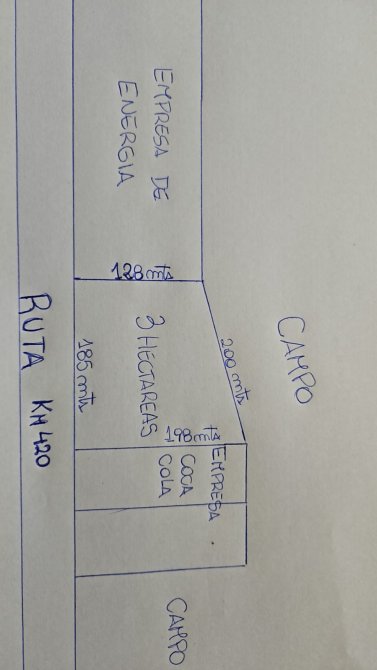 CAMPO
EMPRESA DE
ENERGIA
200 mts
128 mts
3 HECTAREAS
198 mts
185 mts
EMPRESA
COCA
COLA
CAMPO
RUTA KM 420